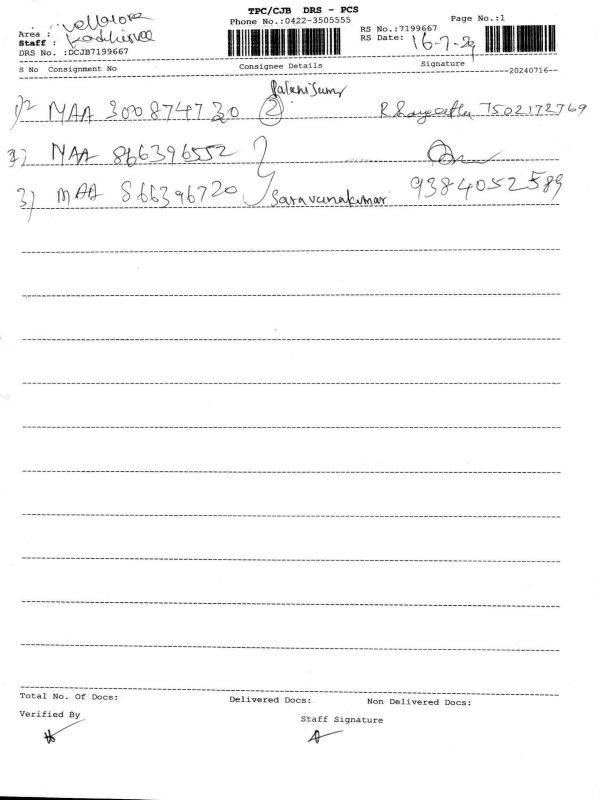 TPC/CJB DRS - PCS
Phone No.:0422-3505555
Page No.:1
Area :
RS No.:7199667
Staff :
RS Date: 16-7-24
DRS No. :DCJB7199667
S No Consignment No Consignee Details Signature
20240716
1) MAA 300874730 2 7502172769
2) MAA 866396552
3) MAA 866396720 Saravanakumar 9384052589
Total No. Of Docs: Delivered Docs: Non Delivered Docs:
Verified By Staff Signature